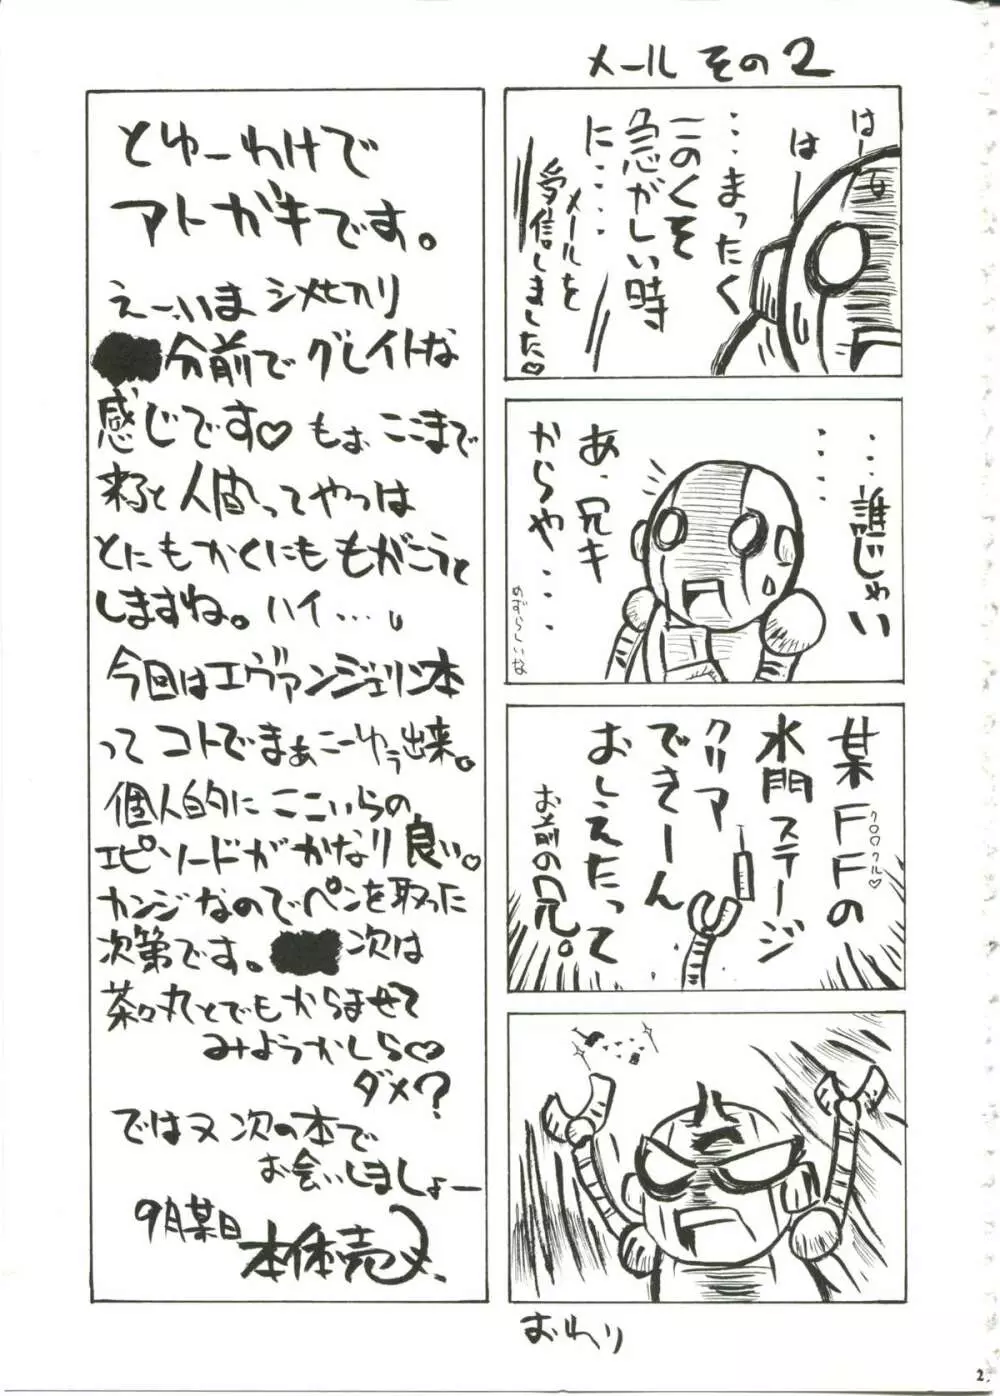 メール その2
はーっ
はーっ
…まったく
このくそ
急がしい時
に……
メールを
受信しました♡
……誰じゃい
……
あ、兄キ
からや…
めずらしいな
某FFの
クロ〇クル♡
水門ステージ
クリア
できーん
おしえたって
お前の兄。
おわり
とゆーわけで
アトガキです。
えー、いまシメキリ
分前でグレイトな
感じです♡もぉここまで
来ると人間ってやつは
とにもかくにももがこうと
しますね。ハイ…。
今回はエヴァンジェリン本
ってコトでまぁこーゆう出来。
個人的にここいらの
エピソードがかなり良い。
カンジなのでペンを取った
次第です。次は
茶々丸とでもからませて
みようかしら♡
ダメ?
ではヌ次の本で
お会いしましょー
9月某日
本体売〆
2